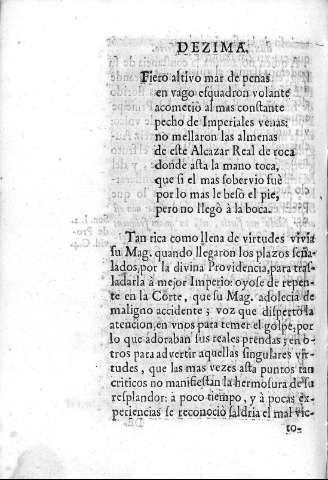 DEZIMA.
Fiero altivo mar de penas
en vago esquadron volante
acometiò al mas constante
pecho de Imperiales venas:
no mellaron las almenas
de este Alcazar Real de roca
donde asta la mano toca,
que si el mas sobervio fuè
por lo mas le besò el pie,
pero no llegò à la boca.
Tan rica como llena de virtudes vivia
su Mag. quando llegaron los plazos seña-
lados, por la divina Providencia, para tras-
ladarla à mejor Imperio: oyose de repen-
te en la Corte, que su Mag. adolecia de
maligno accidente; voz que dispertò la
atencion, en vnos para temer el golpe, por
lo que adoraban sus reales prendas; en o-
tros para advertir aquellas singulares vir-
tudes, que las mas vezes asta puntos tan
criticos no manifiestan la hermosura de su
resplandor: à poco tiempo, y à pocas ex-
periencias se reconociò saldria el mal vic-
to-